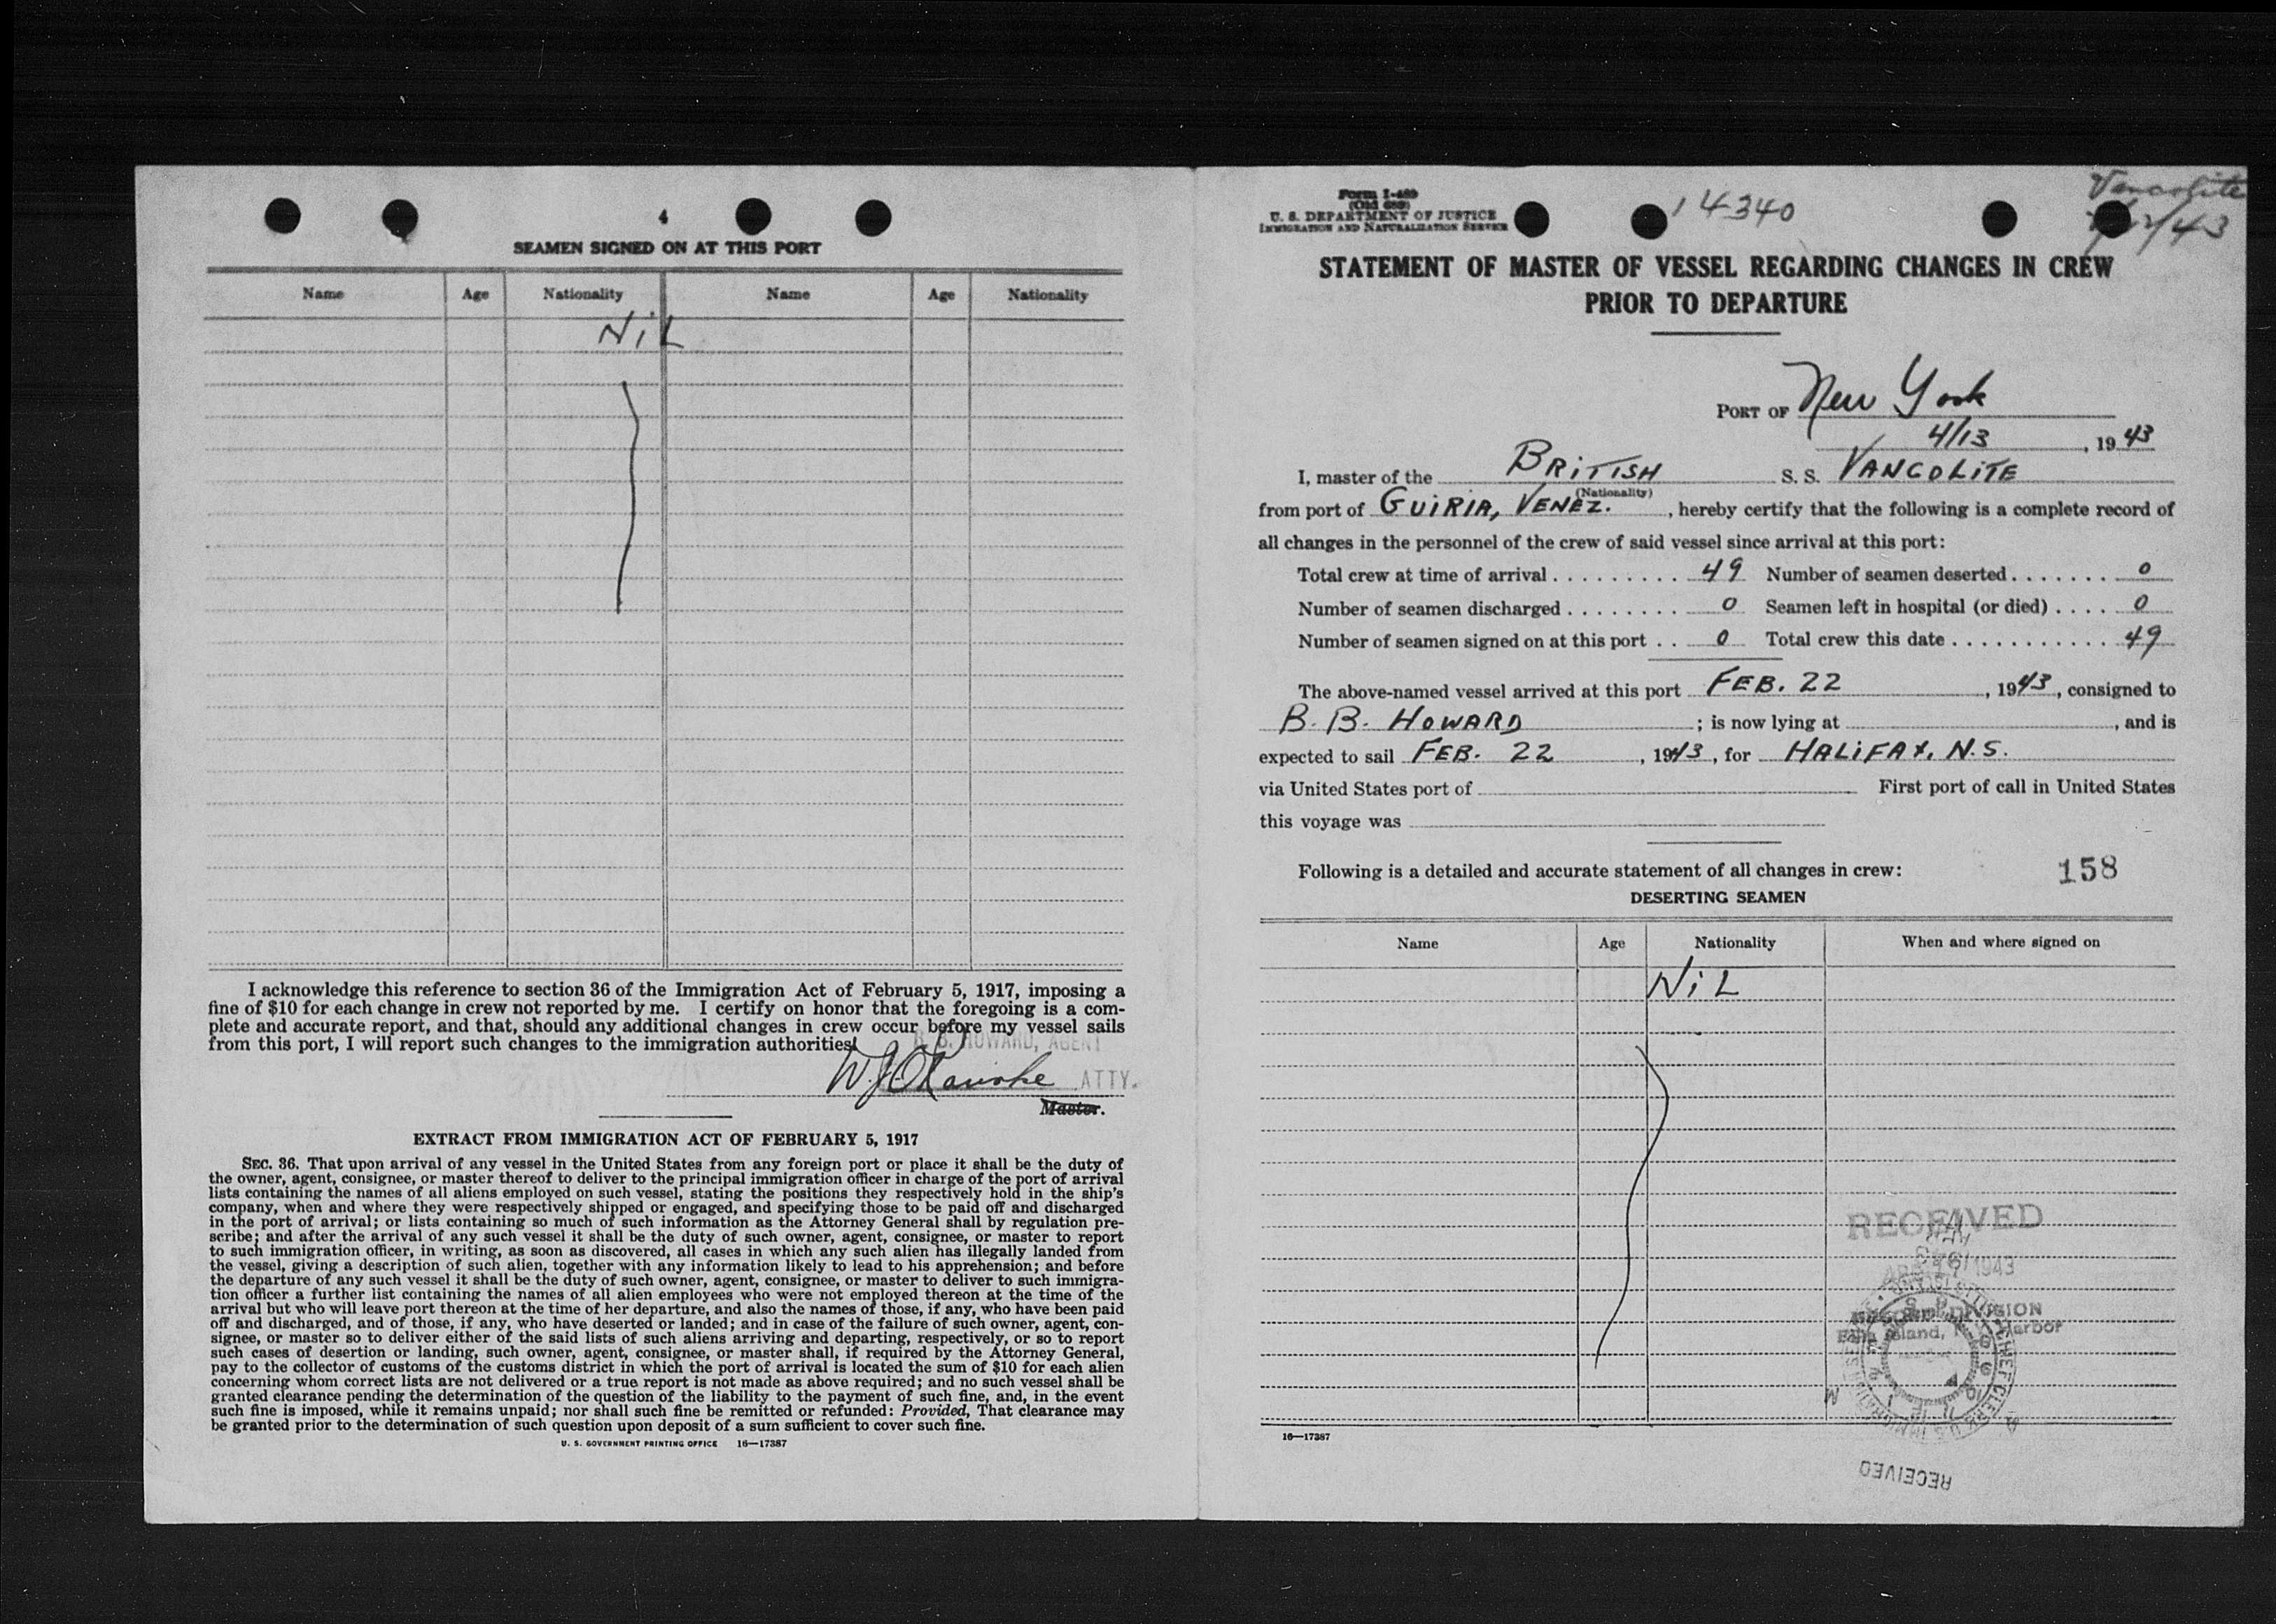 4
SEAMEN SIGNED ON AT THIS PORT
Name Age Nationality Name Age Nationality
NiL
I acknowledge this reference to section 36 of the Immigration Act of February 5, 1917, imposing a
fine of $10 for each change in crew not reported by me. I certify on honor that the foregoing is a com-
plete and accurate report, and that, should any additional changes in crew occur before my vessel sails
from this port, I will report such changes to the immigration authorities.
B. B. HOWARD, AGENT
ATTY.
Master.
EXTRACT FROM IMMIGRATION ACT OF FEBRUARY 5, 1917
SEC. 36. That upon arrival of any vessel in the United States from any foreign port or place it shall be the duty of
the owner, agent, consignee, or master thereof to deliver to the principal immigration officer in charge of the port of arrival
lists containing the names of all aliens employed on such vessel, stating the positions they respectively hold in the ship's
company, when and where they were respectively shipped or engaged, and specifying those to be paid off and discharged
in the port of arrival; or lists containing so much of such information as the Attorney General shall by regulation pre-
scribe; and after the arrival of any such vessel it shall be the duty of such owner, agent, consignee, or master to report
to such immigration officer, in writing, as soon as discovered, all cases in which any such alien has illegally landed from
the vessel, giving a description of such alien, together with any information likely to lead to his apprehension; and before
the departure of any such vessel it shall be the duty of such owner, agent, consignee, or master to deliver to such immigra-
tion officer a further list containing the names of all alien employees who were not employed thereon at the time of the
arrival but who will leave port thereon at the time of her departure, and also the names of those, if any, who have been paid
off and discharged, and of those, if any, who have deserted or landed; and in case of the failure of such owner, agent, con-
signee, or master so to deliver either of the said lists of such aliens arriving and departing, respectively, or so to report
such cases of desertion or landing, such owner, agent, consignee, or master shall, if required by the Attorney General,
pay to the collector of customs of the customs district in which the port of arrival is located the sum of $10 for each alien
concerning whom correct lists are not delivered or a true report is not made as above required; and no such vessel shall be
granted clearance pending the determination of the question of the liability to the payment of such fine, and, in the event
such fine is imposed, while it remains unpaid; nor shall such fine be remitted or refunded: Provided, That clearance may
be granted prior to the determination of such question upon deposit of a sum sufficient to cover such fine.
U. S. GOVERNMENT PRINTING OFFICE 16—17387
Form I-489
(Old 689)
U. S. DEPARTMENT OF JUSTICE
IMMIGRATION AND NATURALIZATION SERVICE
14340
Vancolite
STATEMENT OF MASTER OF VESSEL REGARDING CHANGES IN CREW
PRIOR TO DEPARTURE
PORT OF New York
4/13, 1943
I, master of the BRiTISH S. S. VANCOLiTE
(Nationality)
from port of GUiRIA, VENEZ., hereby certify that the following is a complete record of
all changes in the personnel of the crew of said vessel since arrival at this port:
Total crew at time of arrival . . . . . . . . . 49 Number of seamen deserted . . . . . . . 0
Number of seamen discharged . . . . . . . . 0 Seamen left in hospital (or died) . . . . 0
Number of seamen signed on at this port . . 0 Total crew this date . . . . . . . . . . . 49
The above-named vessel arrived at this port FEB. 22, 1943, consigned to
B. B. HOWARD; is now lying at , and is
expected to sail FEB. 22, 1943, for HALiFAX, N.S.
via United States port of First port of call in United States
this voyage was
Following is a detailed and accurate statement of all changes in crew: 158
DESERTING SEAMEN
Name Age Nationality When and where signed on
NiL
RECEIVED
1943
RECORD DIVISION
Ellis Island, N. Y. Harbor
16—17387
RECEIVED